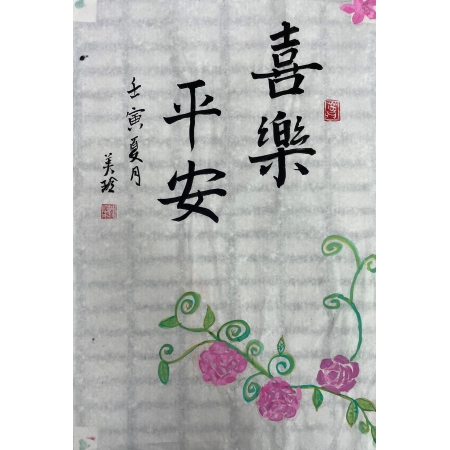 喜樂
平安
壬寅夏月
美玲